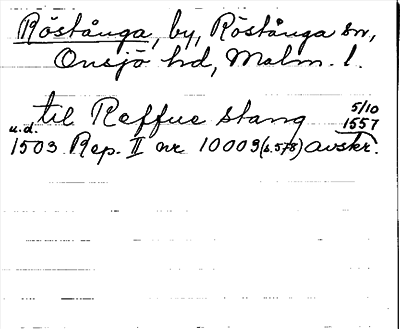 Röstånga, by, Röstånga sn,
Onsjö hd, Malm. l.
til Reffue stang 5/10 1557
u.d.
1503 Rep. II nr 10009 (s. 578) avskr.